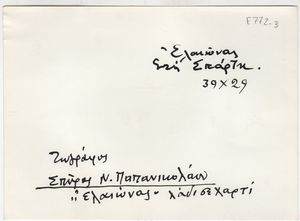 E772-3
"Ελαιώνας
Στη Σπάρτη.
39 x 29
Ζωγράφος
Σπύρος Ν. Παπανικολάου
"Ελαιώνας" λάδι σε χαρτί